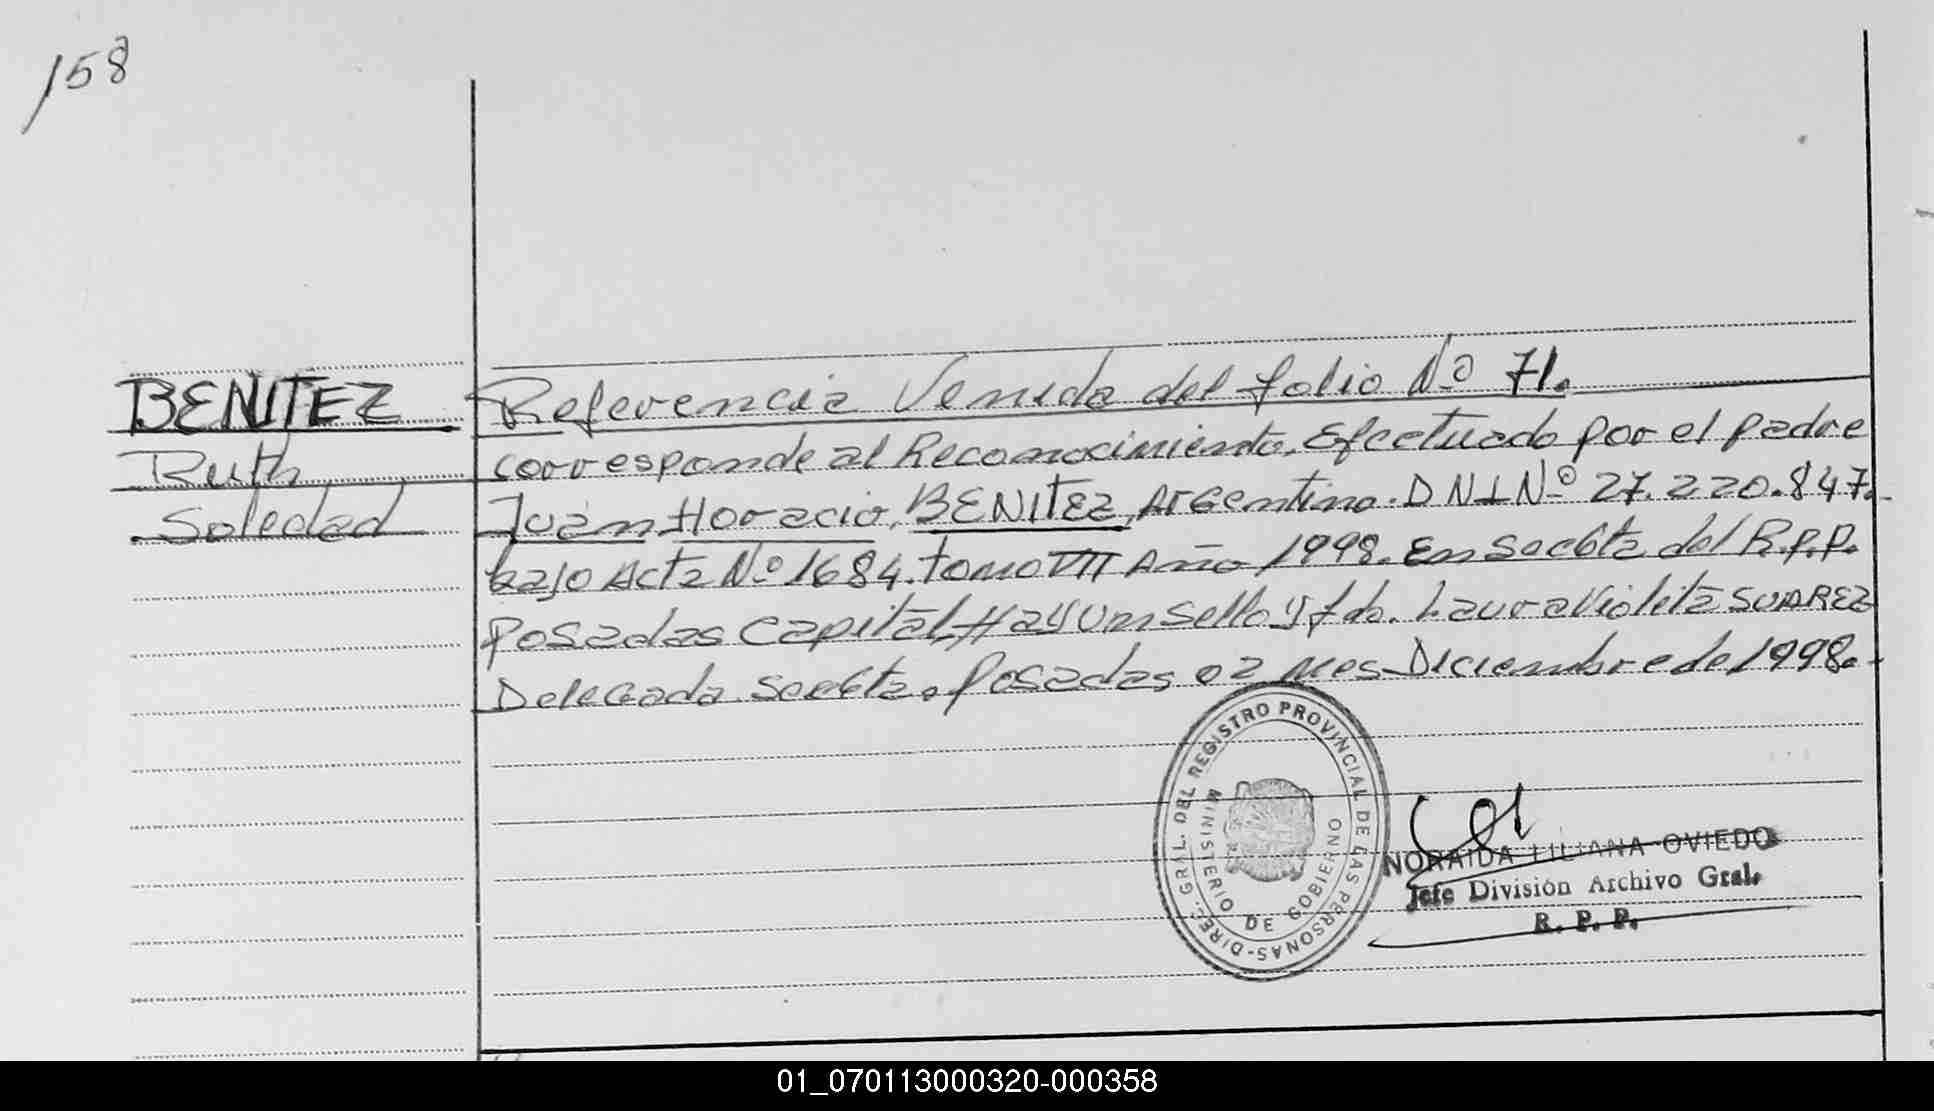 158
BENITEZ
Ruth
Soledad
Referencia Venida del folio Nº 71.
corresponde al Reconocimiento, Efectuado por el padre
Juan Horacio, BENITEZ, Argentino. DNI Nº 27.220.847.-
bajo Acta Nº 1684. tomo VII Año 1998. En Sec 6ta del R.P.P.
Posadas Capital, Hay un sello y fdo. Laura Violeta SUAREZ
Delegada Sec 6ta. Posadas, 02 Mes Diciembre de 1998.-
DIREC. GRAL. DEL REGISTRO PROVINCIAL DE LAS PERSONAS-
MINISTERIO DE GOBIERNO
NORAIDA LILIANA OVIEDO
Jefe División Archivo Gral.
R. P. P.
01_070113000320-000358